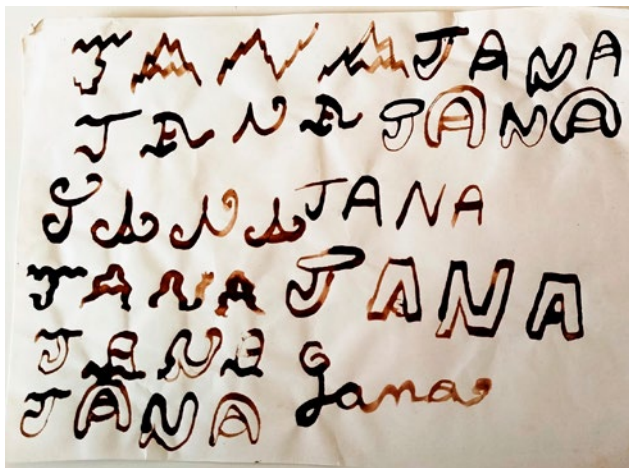 JANA JANA
JANA JANA
JANA JANA
JANA JANA
JANA Jana
JANA